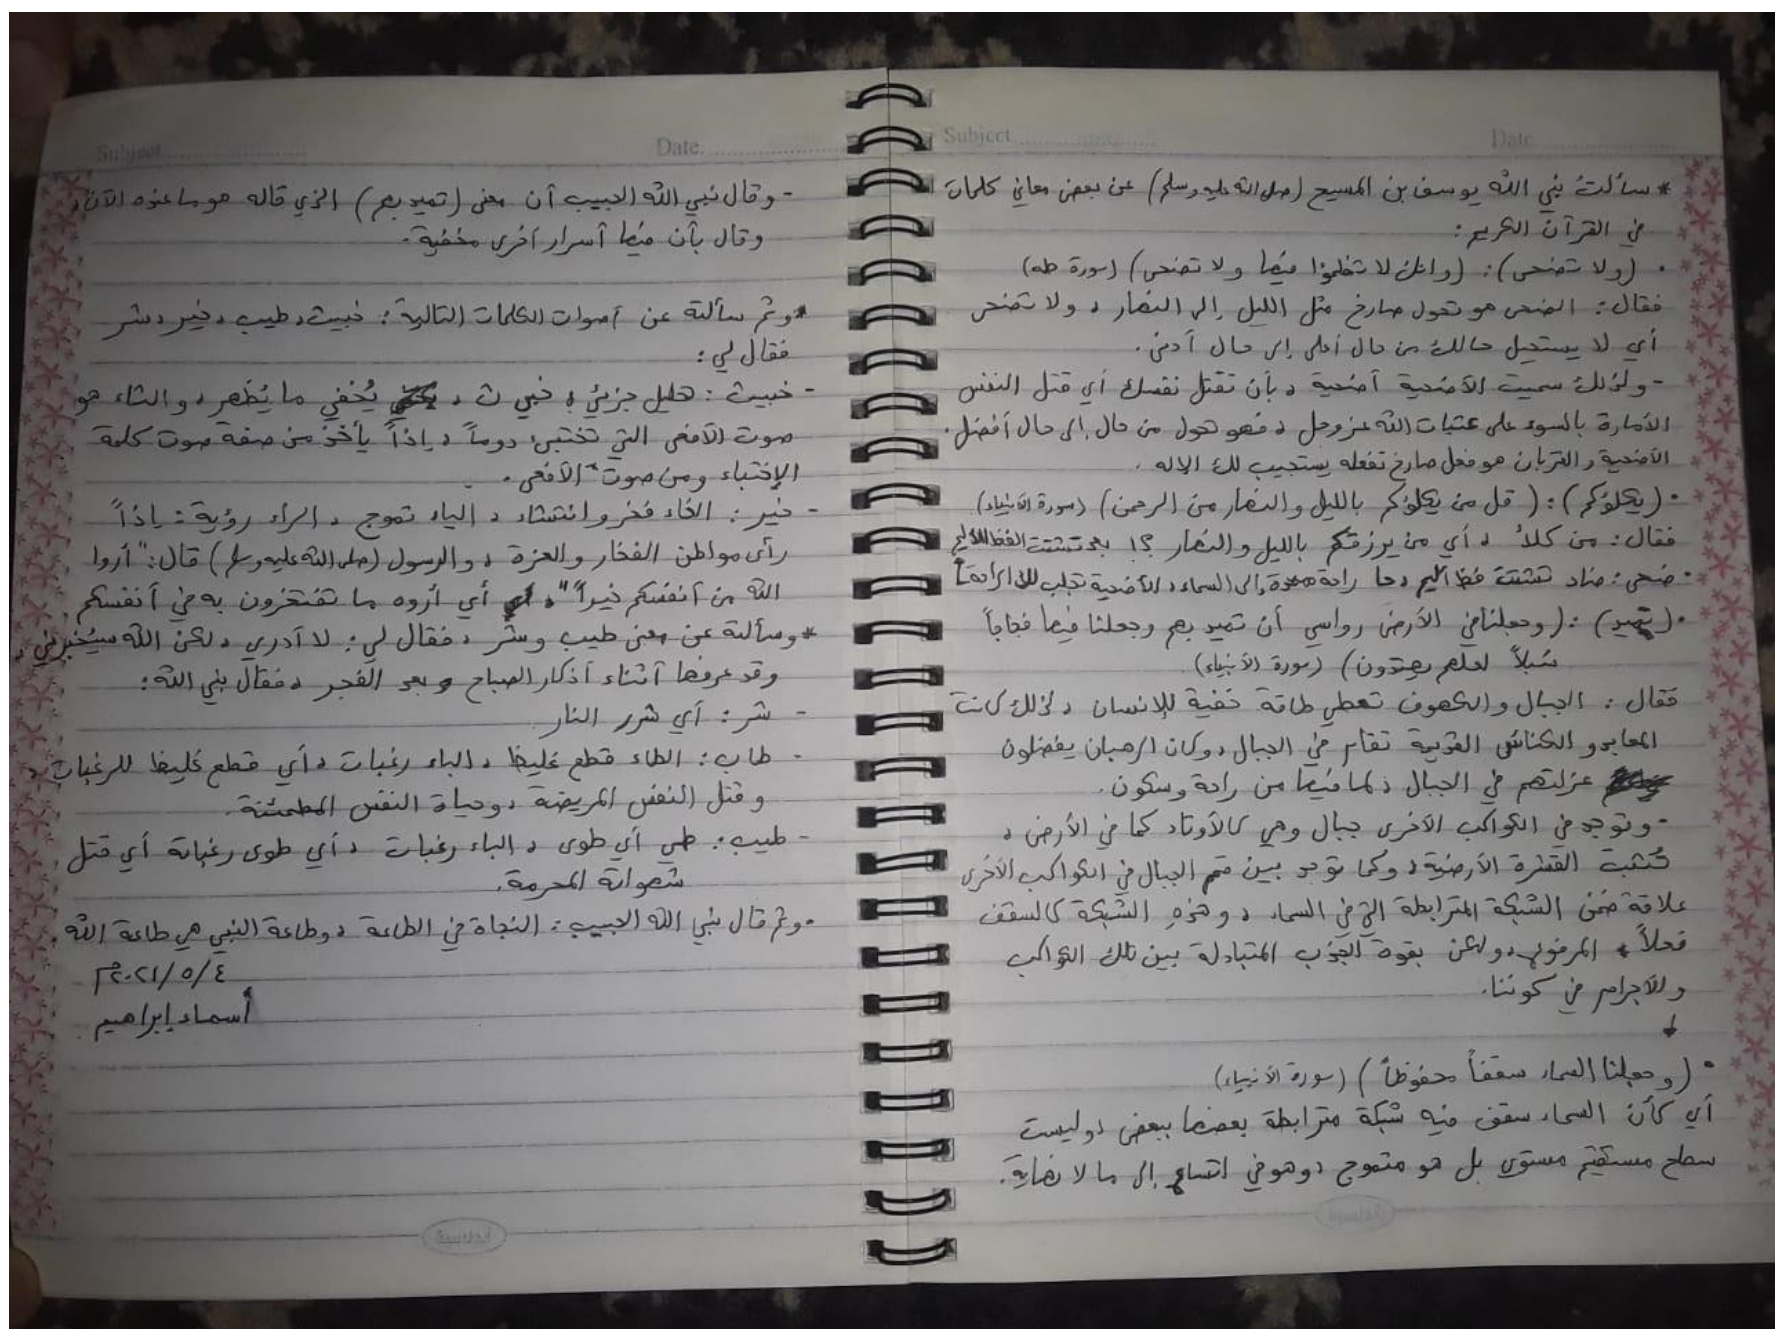 Subject
Date
* سألت نبي الله يوسف بن المسيح (صلى الله عليه وسلم) عن بعض معاني كلمات
في القرآن الكريم :
• (ولا تضحى) : (وانك لا تظمؤا فيها ولا تضحى) (سورة طه)
فقال : الضحى هو تحول صارخ مثل الليل إلى النهار ، ولا تضحى
أي لا يستحيل حالك من حال أعلى إلى حال أدنى .
- ولذلك سميت الأضحية أضحية ، بأن تقتل نفسك أي قتل النفس
الأمارة بالسوء على عتبات الله عز وجل ، فهو تحول من حال إلى حال أفضل .
الأضحية والقربان هو فعل صارخ تفعله يستجيب لك الإله .
• (يكلؤكم) : (قل من يكلؤكم بالليل والنهار من الرحمن) (سورة الأنبياء)
فقال : من كلأ ، أي من يرزقكم بالليل والنهار ؟! بعد تشتت الفظ الأليم
• ضحى : ضاد تشتت فظ أليم ، حا راحة ، إلى السماء ، الأضحية تجلب لك الراحة
• (تميد) : (وجعلنا في الأرض رواسي أن تميد بهم وجعلنا فيها فجاجاً
سُبلاً لعلهم يهتدون) (سورة الأنبياء) .
فقال : الجبال والكهوف تعطي طاقة خفية للإنسان ، لذلك كانت
المعابد و الكنائس القديمة تقام في الجبال ، وكان الرهبان يفضلون
عزلتهم في الجبال ، لما فيها من راحة وسكون .
- وتوجد في الكواكب الأخرى جبال وهي كالأوتاد كما في الأرض ،
تُثبت القشرة الأرضية ، وكما توجد بين قمم الجبال في الكواكب الأخرى
علاقة ضمن الشبكة المترابطة التي في السماء ، وهذهِ الشبكة كالسقف
فعلاً المرفوع ، ولكن بقوة الجذب المتبادلة بين تلك الكواكب
والأجرام في كوننا .
↓
• (وجعلنا السماء سقفاً محفوظاً) (سورة الأنبياء)
أي كأن السماء سقف فيه شبكة مترابطة بعضها ببعض ، وليست
سطح مستقيم مستوي بل هو متموج ، وهو في اتساع إلى ما لا نهاية .
Subject
Date
- وقال نبي الله الحبيب أن معنى (تميد بهم) الذي قاله هو ما عنده الآن ،
وقال بأن فيها أسرار أخرى مخفية .
* وثم سألته عن أصوات الكلمات التالية : خبيث ، طيب ، خير ، شر
فقال لي :
- خبيث : هليل جزئي ، خبي ث ، يُخفي ما يُظهر ، والثاء هو
صوت الأفعى التي تختبئ دوماً ، إذاً يأخذ من صفة صوت كلمة
الإختباء ومن صوت الأفعى .
- خير : الخاء فخر وانتشاء ، الياء تموج ، الراء رؤية : إذاً
رأى مواطن الفخار والعزة ، والرسول (صلى الله عليه وسلم) قال : "أروا
الله من أنفسكم خيراً" ، أي أروه ما تفتخرون به في أنفسكم
* وسألته عن معنى طيب وشر ، فقال لي : لا أدري ، لكن الله سيُخبرني ،
وقد عرفها أثناء أذكار الصباح بعد الفجر ، فقال نبي الله :
- شر : أي شرر النار .
- طاب : الطاء قطع غليظ ، الباء رغبات ، أي قطع غليظ للرغبات ،
و قتل النفس المريضة ، وحياة النفس المطمئنة .
- طيب : طي أي طوى ، الباء رغبات ، أي طوى رغباته أي قتل
شهواته المحرمة .
- وثم قال نبي الله الحبيب : النجاة في الطاعة ، وطاعة النبي هي طاعة الله .
٢٠٢١/٥/٤م
أسماء إبراهيم